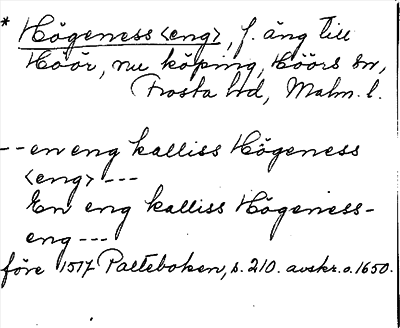 * Högeness <eng>, f. äng till
Höör, nu köping, Höörs sn,
Frosta hd, Malm. l.
-- en eng kalliss Högeness
<eng> ---
En eng kalliss Högeness-
eng ---
före 1517 Palteboken, s. 210. avskr. o. 1650.